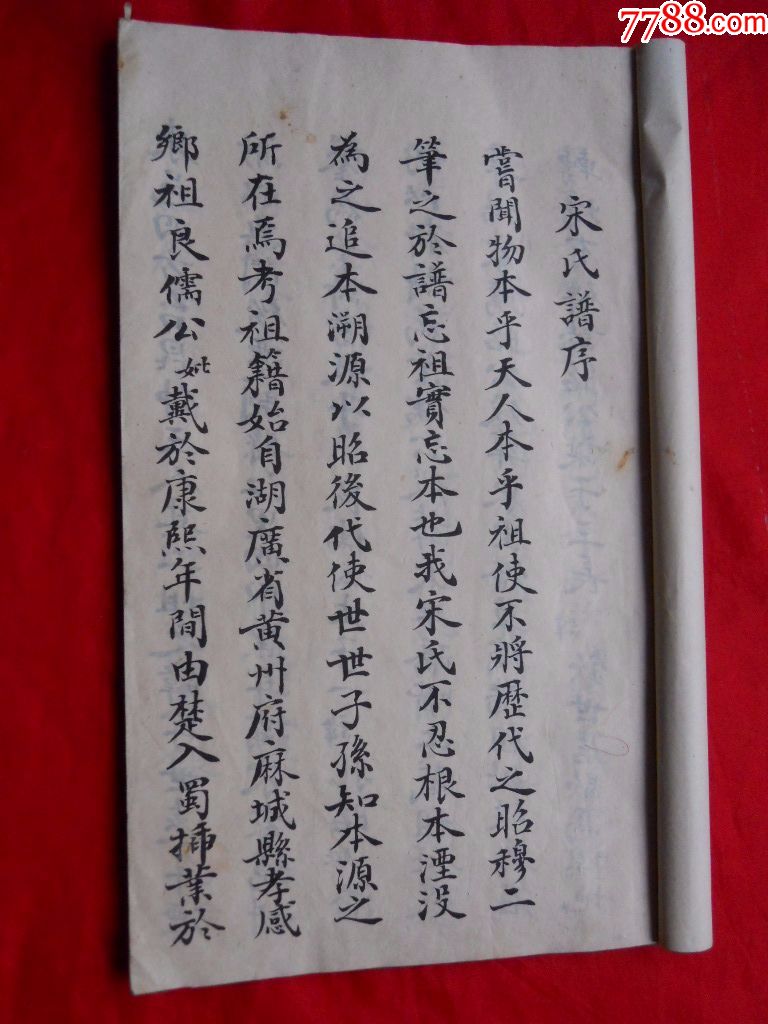 7788.com
宋氏譜序
嘗聞物本乎天人本乎祖使不將歷代之昭穆二
筆之於譜忘祖實忘本也我宋氏不忍根本湮没
為之追本溯源以昭後代使世世子孫知本源之
所在焉考祖籍始自湖廣省黄州府麻城縣孝感
鄉祖良儒公妣戴於康熙年間由楚入蜀插業於